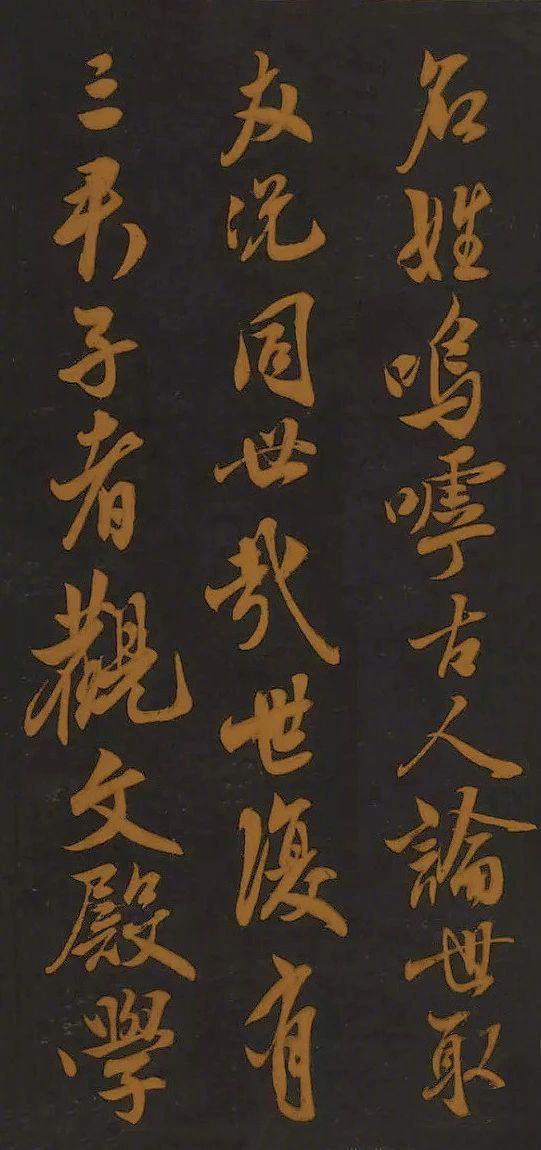 名姓嗚嘑古人論世取
友況同世哉世復有
三君子者觀文殿學